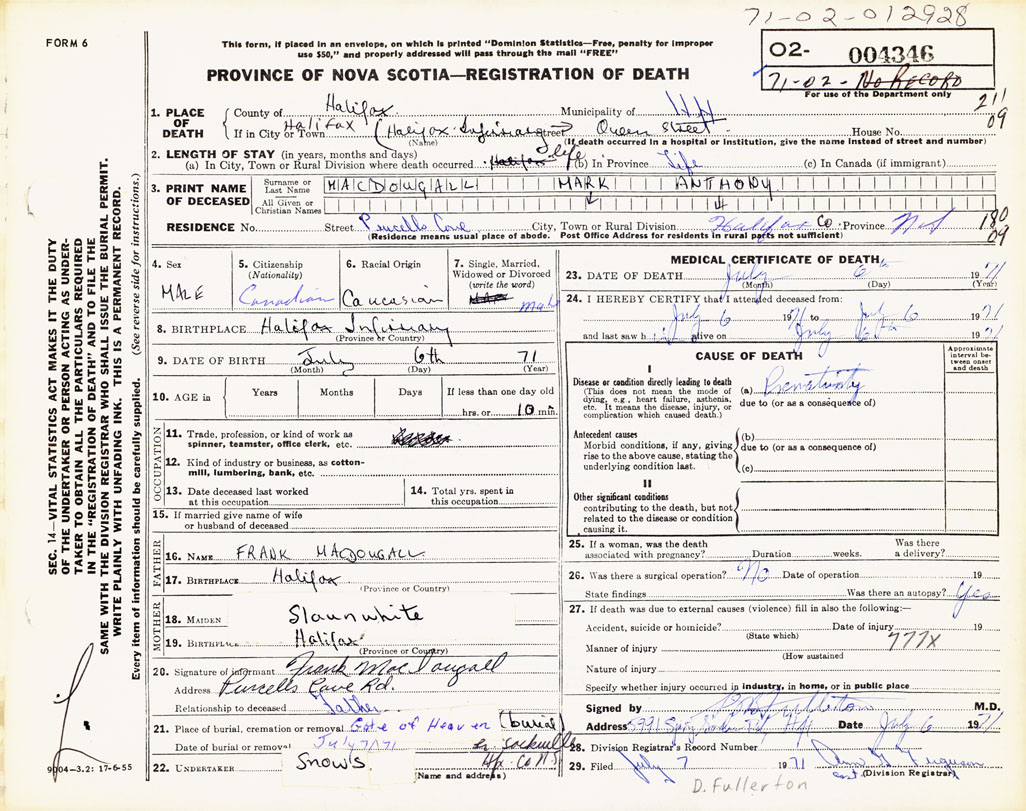 71-02-012928
FORM 6
This form, if placed in an envelope, on which is printed "Dominion Statistics—Free, penalty for improper
use $50," and properly addressed will pass through the mail "FREE"
O2- 004346
71-02- No Record
For use of the Department only
PROVINCE OF NOVA SCOTIA—REGISTRATION OF DEATH
211
09
1. PLACE OF DEATH
County of Halifax Municipality of
If in City or Town Halifax (Halifax Infirmary) Street Queen Street House No.
(Name) (If death occurred in a hospital or institution, give the name instead of street and number)
2. LENGTH OF STAY (in years, months and days)
(a) In City, Town or Rural Division where death occurred life (b) In Province Life (c) In Canada (if immigrant)
3. PRINT NAME OF DECEASED
Surname or Last Name MACDOUGALL MARK ANTHONY
All Given or Christian Names
RESIDENCE No. Street Purcells Cove City, Town or Rural Division Halifax Co Province NS
180
09
(Residence means usual place of abode. Post Office Address for residents in rural parts not sufficient)
4. Sex
MALE
5. Citizenship
(Nationality)
Canadian
6. Racial Origin
Caucasian
7. Single, Married,
Widowed or Divorced
(write the word)
8. BIRTHPLACE Halifax Infirmary
(Province or Country)
9. DATE OF BIRTH July 6th 71
(Month) (Day) (Year)
10. AGE in Years Months Days If less than one day old
hrs. or 10 min.
OCCUPATION
11. Trade, profession, or kind of work as
spinner, teamster, office clerk, etc.
12. Kind of industry or business, as cotton-
mill, lumbering, bank, etc.
13. Date deceased last worked
at this occupation
14. Total yrs. spent in
this occupation
15. If married give name of wife
or husband of deceased
FATHER
16. NAME FRANK MACDOUGALL
17. BIRTHPLACE Halifax
(Province or Country)
MOTHER
18. MAIDEN Slaunwhite
19. BIRTHPLACE Halifax
(Province or Country)
20. Signature of informant Frank MacDougall
Address Purcells Cove Rd.
Relationship to deceased Father
21. Place of burial, cremation or removal Gate of Heaven (burial)
Date of burial or removal July 7/71 Lr. Sackville
Hfx. Co N.S.
22. UNDERTAKER Snow's
(Name and address)
MEDICAL CERTIFICATE OF DEATH
23. DATE OF DEATH July 6th 1971
(Month) (Day) (Year)
24. I HEREBY CERTIFY that I attended deceased from:
July 6 1971 to July 6 1971
and last saw him alive on July 6th 1971
CAUSE OF DEATH
Approximate
interval be-
tween onset
and death
I
Disease or condition directly leading to death
(This does not mean the mode of
dying, e.g., heart failure, asthenia,
etc. It means the disease, injury, or
complication which caused death.)
(a) Prematurity
due to (or as a consequence of)
Antecedent causes
Morbid conditions, if any, giving
rise to the above cause, stating the
underlying condition last.
(b)
due to (or as a consequence of)
(c)
II
Other significant conditions
contributing to the death, but not
related to the disease or condition
causing it.
25. If a woman, was the death
associated with pregnancy? Duration weeks. Was there
a delivery?
26. Was there a surgical operation? No Date of operation 19
State findings Was there an autopsy? Yes
27. If death was due to external causes (violence) fill in also the following:—
Accident, suicide or homicide? Date of injury 19
(State which)
777X
Manner of injury
(How sustained
Nature of injury
Specify whether injury occurred in industry, in home, or in public place
Signed by M.D.
Address 5991 Spring Garden Rd Hfx Date July 6 1971
28. Division Registrar's Record Number
29. Filed July 7 1971 Ferguson
(Division Registrar)
D. Fullerton
SEC. 14—VITAL STATISTICS ACT MAKES IT THE DUTY
OF THE UNDERTAKER OR PERSON ACTING AS UNDER-
TAKER TO OBTAIN ALL THE PARTICULARS REQUIRED
IN THE "REGISTRATION OF DEATH" AND TO FILE THE
SAME WITH THE DIVISION REGISTRAR WHO SHALL ISSUE THE BURIAL PERMIT.
WRITE PLAINLY WITH UNFADING INK. THIS IS A PERMANENT RECORD.
Every item of information should be carefully supplied. (See reverse side for instructions.)
9004-3.2: 17-6-55